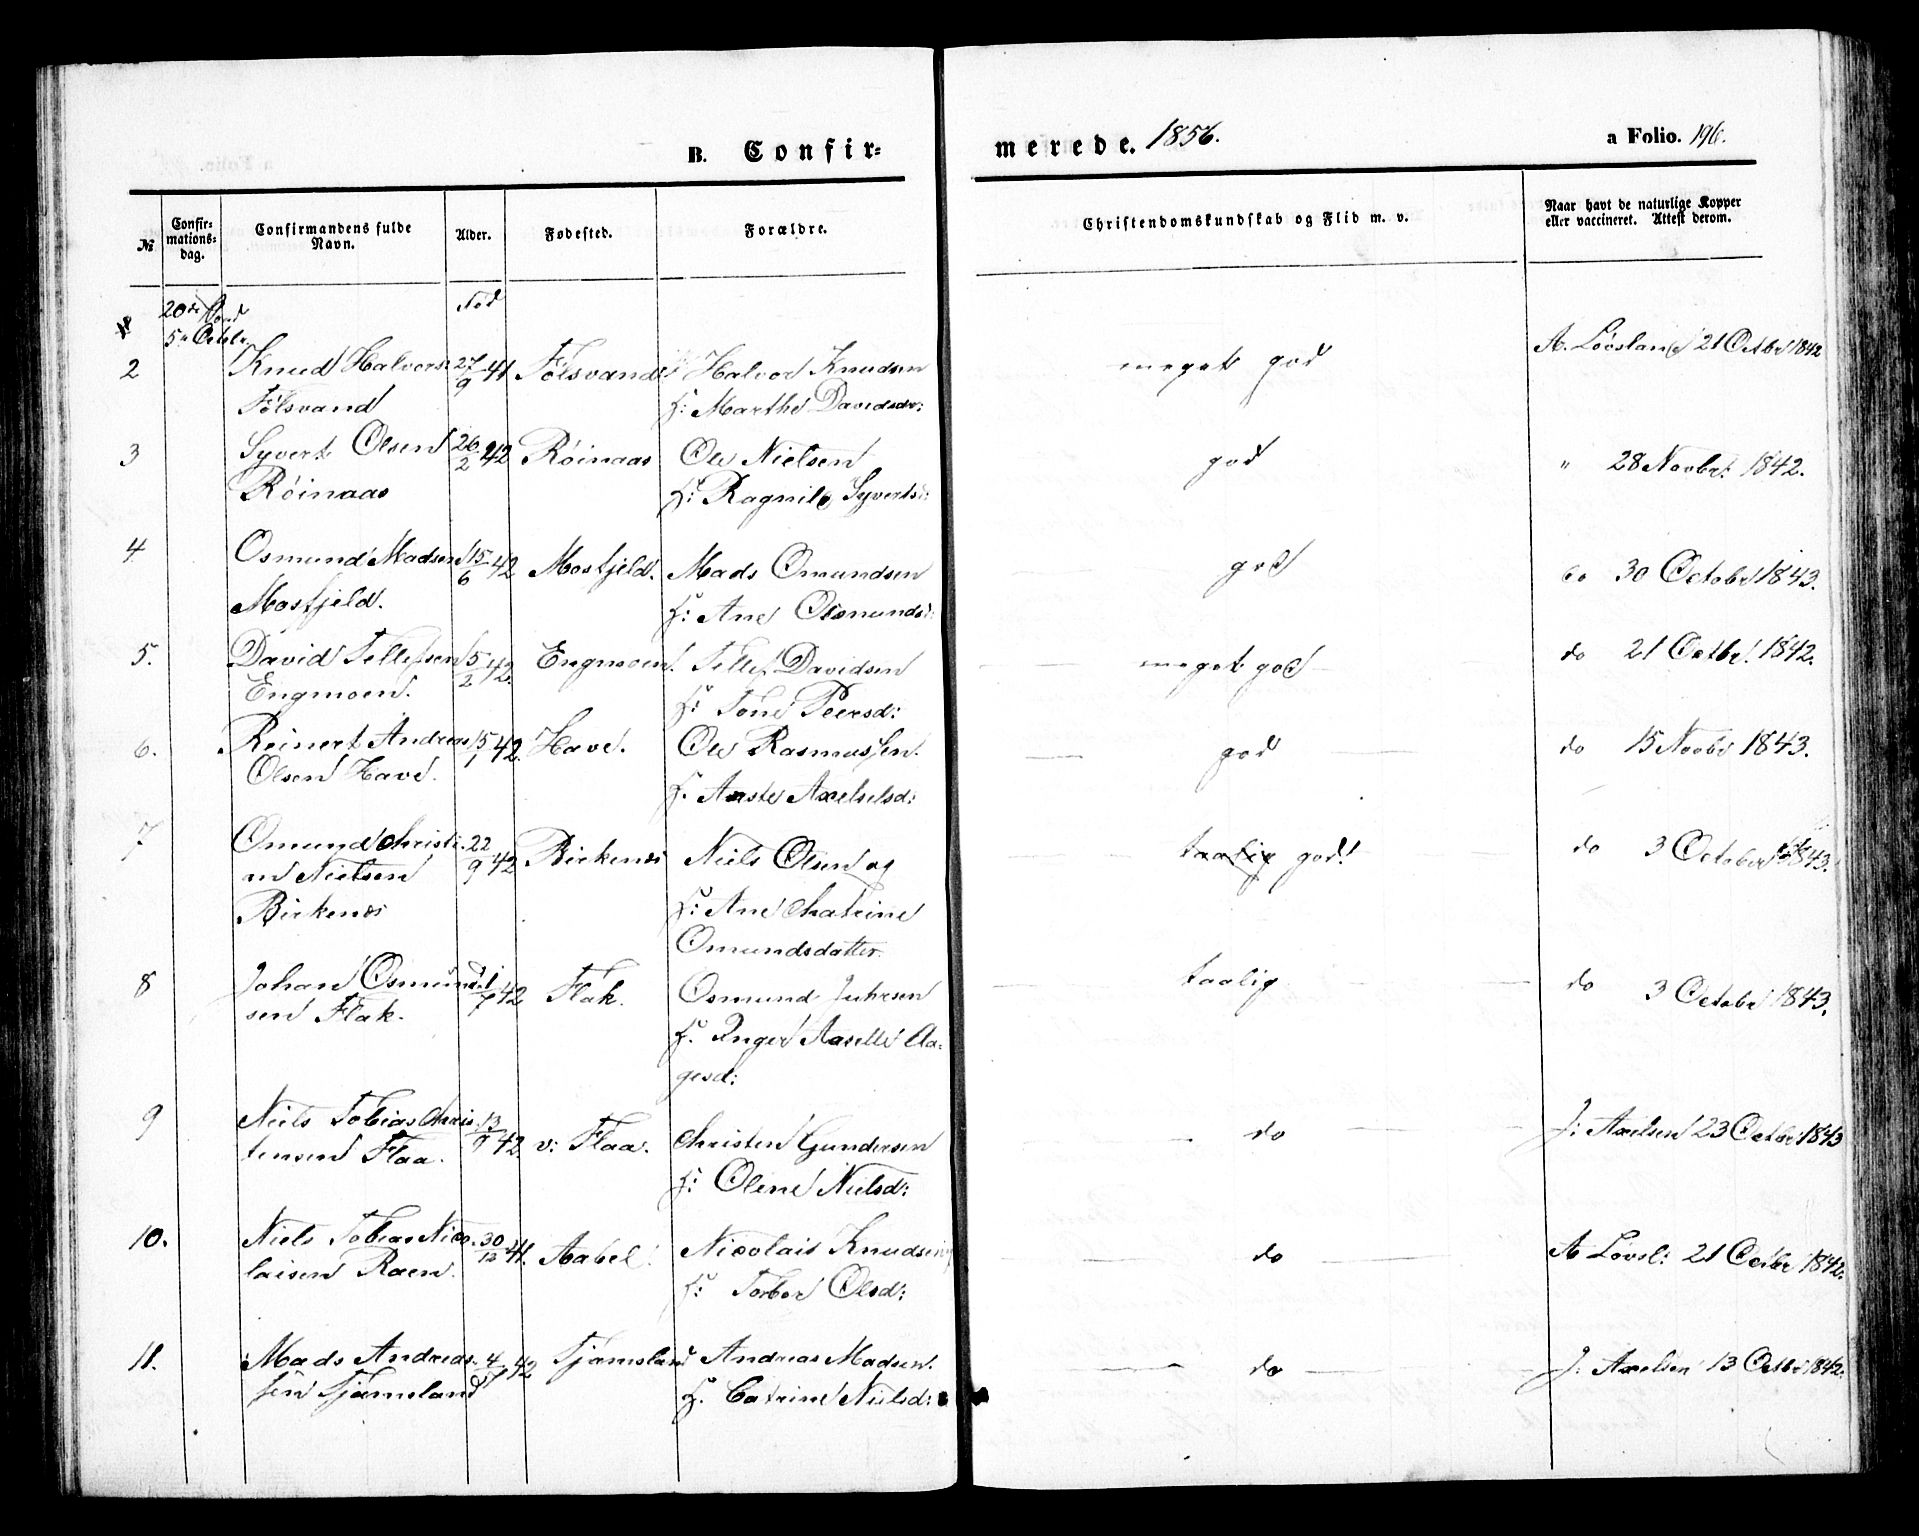 B. Confir-
merede. 1856.
a Folio. 196.
№
Confir-
mations-
dag.
Confirmandens fulde
Navn.
Alder.
Fødested.
Forældre.
Christendomskundskab og Flid m. v.
Naar havt de naturlige Kopper
eller vaccineret. Attest derom.
20de
5te Octbr
Fød
2 Knud Halvors: 27/9 41 Følsvand Halvor Knudsen meget god A. Løvsland 21 Octbr 1842
Følsvand H: Marthe Davidsdr:
3 Syvert Olsen 26/2 42 Røinaas Ole Nielsen god " 28 Novbr: 1842.
Røinaas H: Ragnild Syvertsd:
4 Osmund Madsen 15/6 42 Mosfjeld. Mads Omundsen god do 30 Octobr 1843.
Mosfjeld. H: Ane Osmundsd:
5. David Tellefsen 5/2 42. Engmoen. Tellef Davidsen meget god do 21 Octbr. 1842.
Engmoen. H: Tone Peersd:
6. Reinert Andreas 15/1 42. Have. Ole Rasmussen. god do 15 Novbr 1843.
Olsen Have. H. Aaste Axelsd:
7 Omund Christi- 22/9 42 Birkenes Niels Olsen og taalig god! do 3 October 1843.
an Nielsen H: Ane Chatrine
Birkenes Omundsdatter.
8 Johan Osmund- 21/7 42 Flak. Osmund Juhlsen taalig do 3 Octobr 1843.
sen Flak. H. Inger Aaselle Aa-
gesd:
9 Niels Tobias Chris- 13/9 42. v: Flaa. Christen Gundersen do J: Axelsen 23 Octbr 1843
tensen Flaa. H: Oline Nielsd:
10. Niels Tobias Nico- 30/12 41. Aabel. Nicolais Knudsen do A Løvsl: 21 Octbr 1842.
laisen Raen. H: Torbor Olsd:
11. Mads Andreas- 4/7 42 Tjømsland Andreas Madsen. do J: Axelsen 13 Octbr 1842.
sen Tjømsland H. Catrine Nielsd: